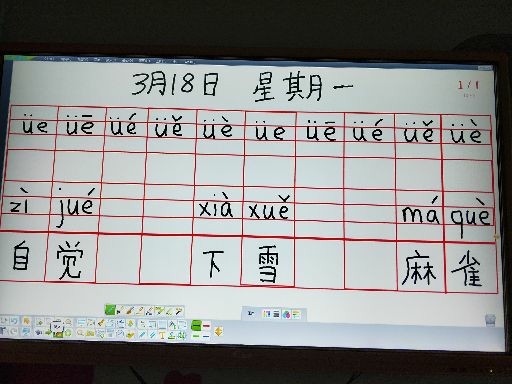 3月18日 星期一
1/1
üe üē üé üě üè üe üē üé üě üè
zì jué xià xuě má què
自觉 下雪 麻雀